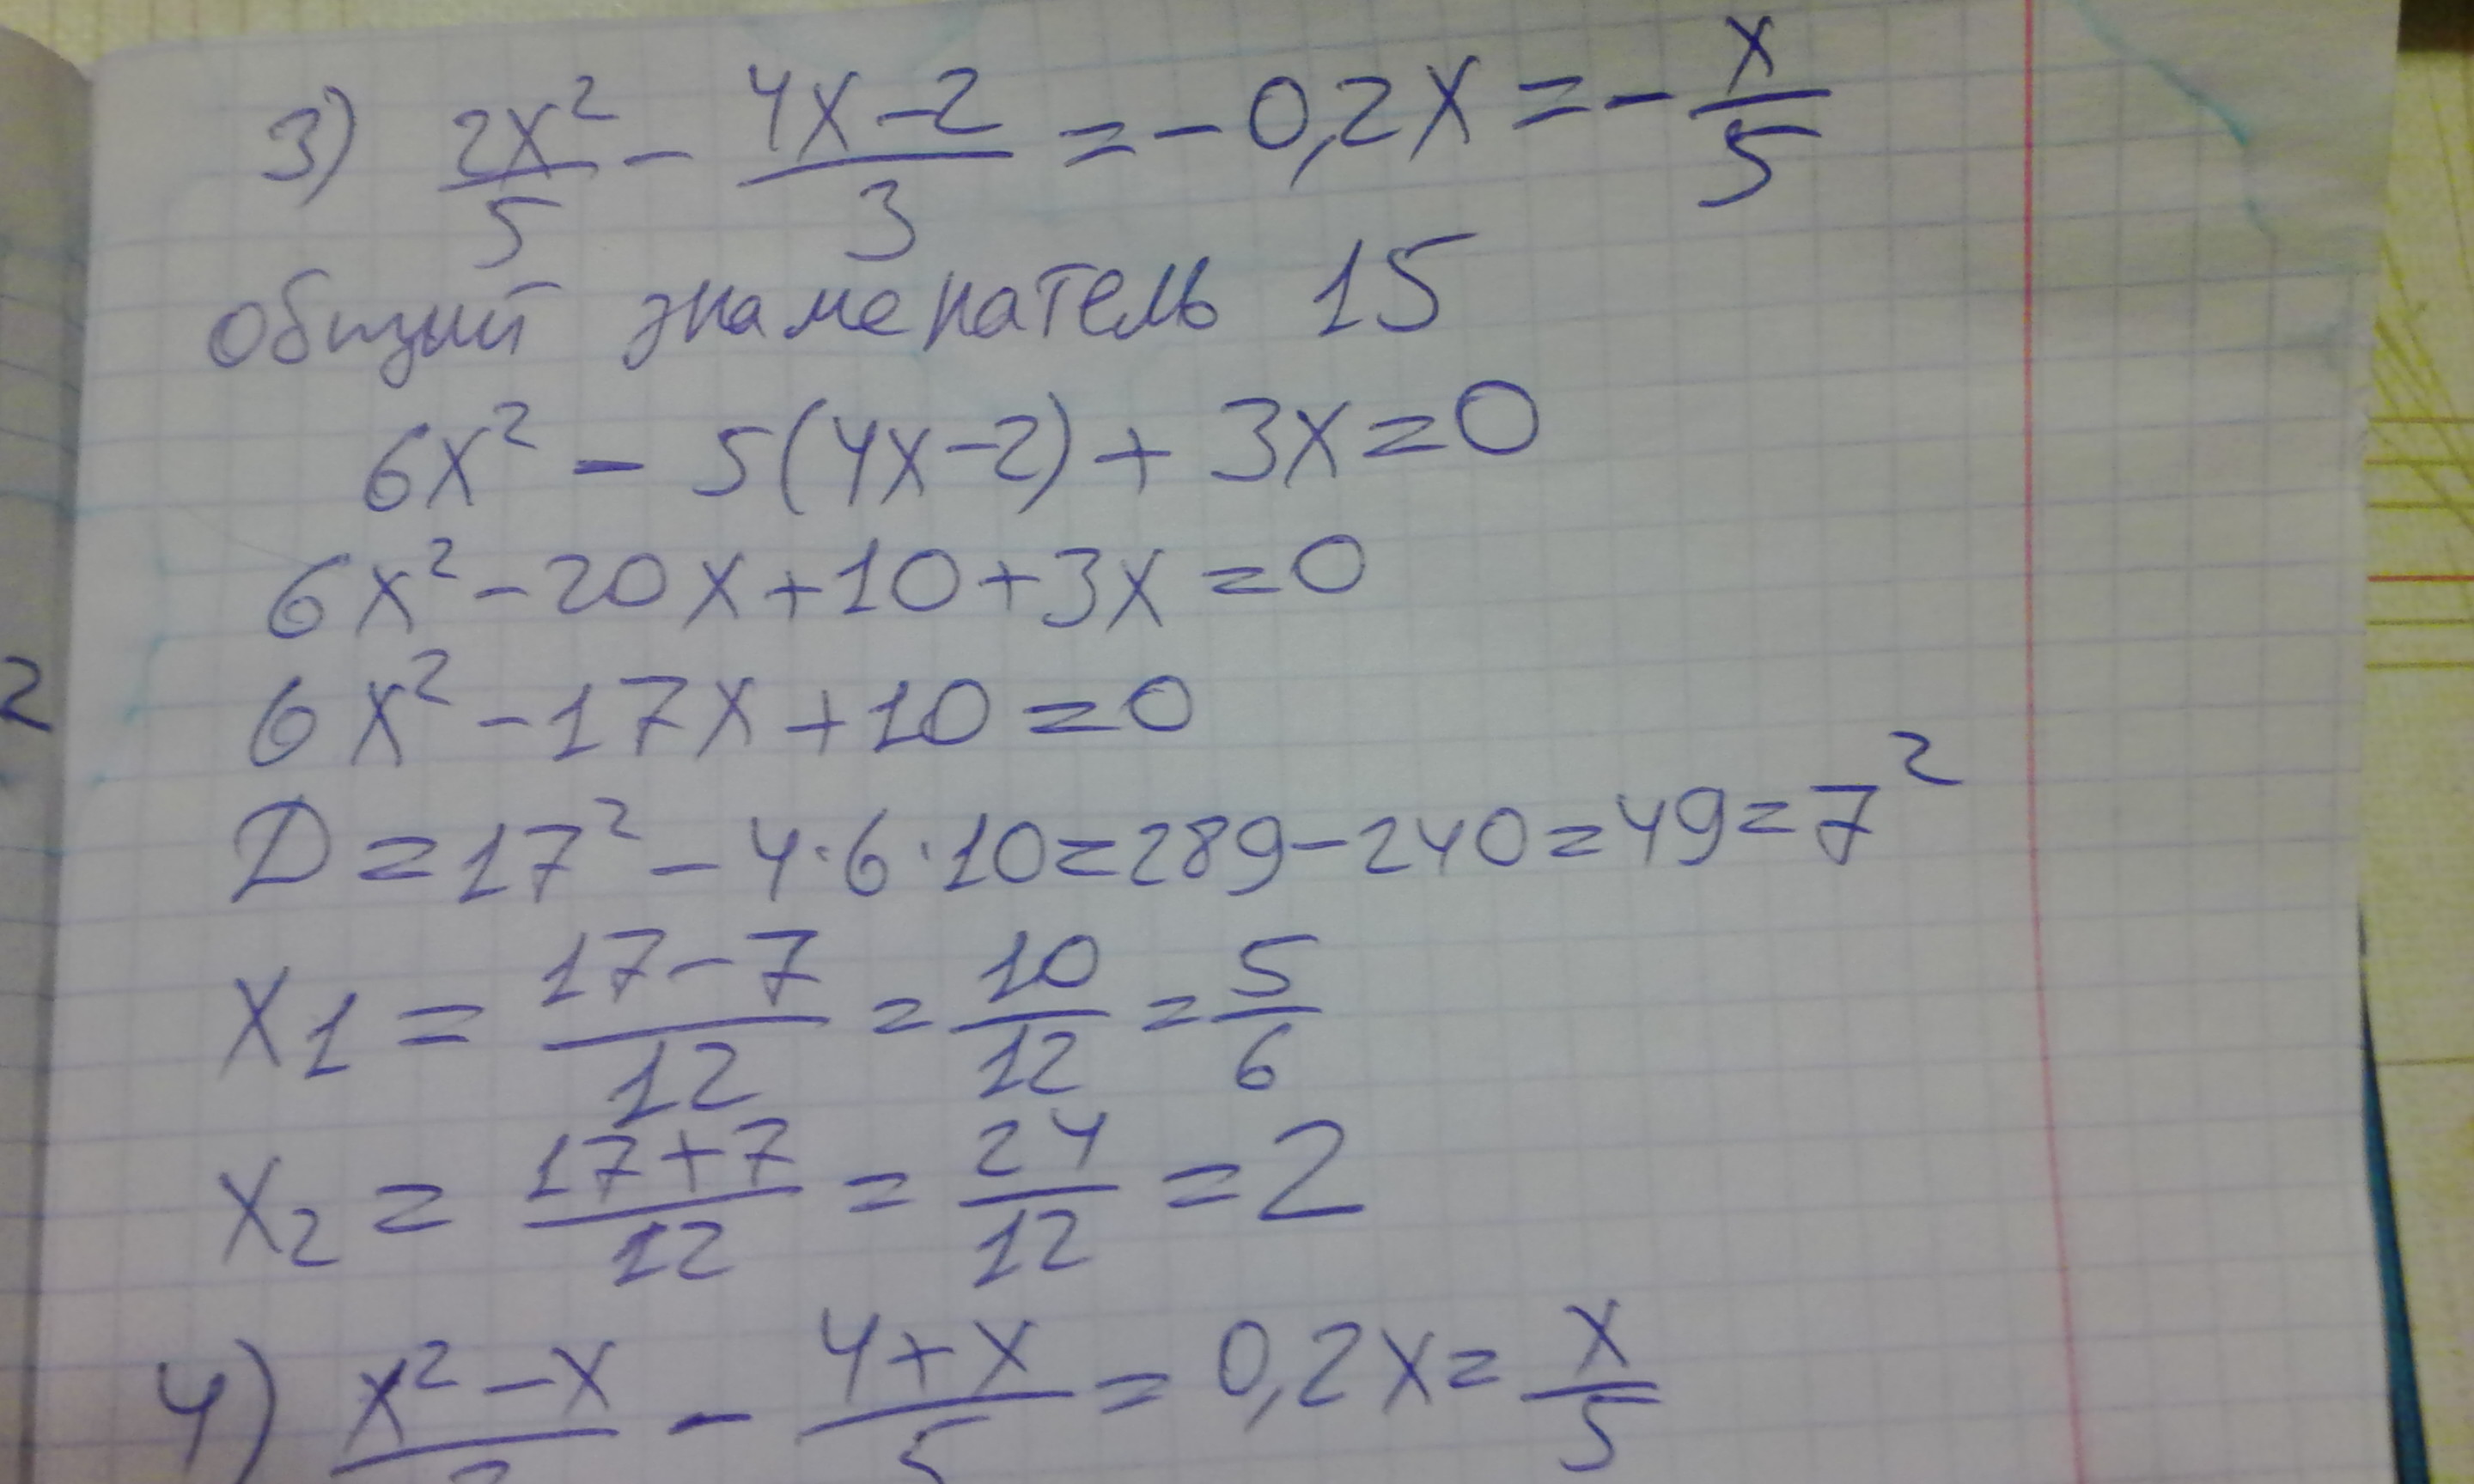 3) 2x²/5 - 4x-2/3 = -0,2x = - x/5
общий знаменатель 15
6x² - 5(4x-2) + 3x = 0
6x² - 20x + 10 + 3x = 0
2
6x² - 17x + 10 = 0
D = 17² - 4·6·10 = 289 - 240 = 49 = 7²
x₁ = 17-7/12 = 10/12 = 5/6
x₂ = 17+7/12 = 24/12 = 2
4) x²-x/ - 4+x/5 = 0,2x = x/5